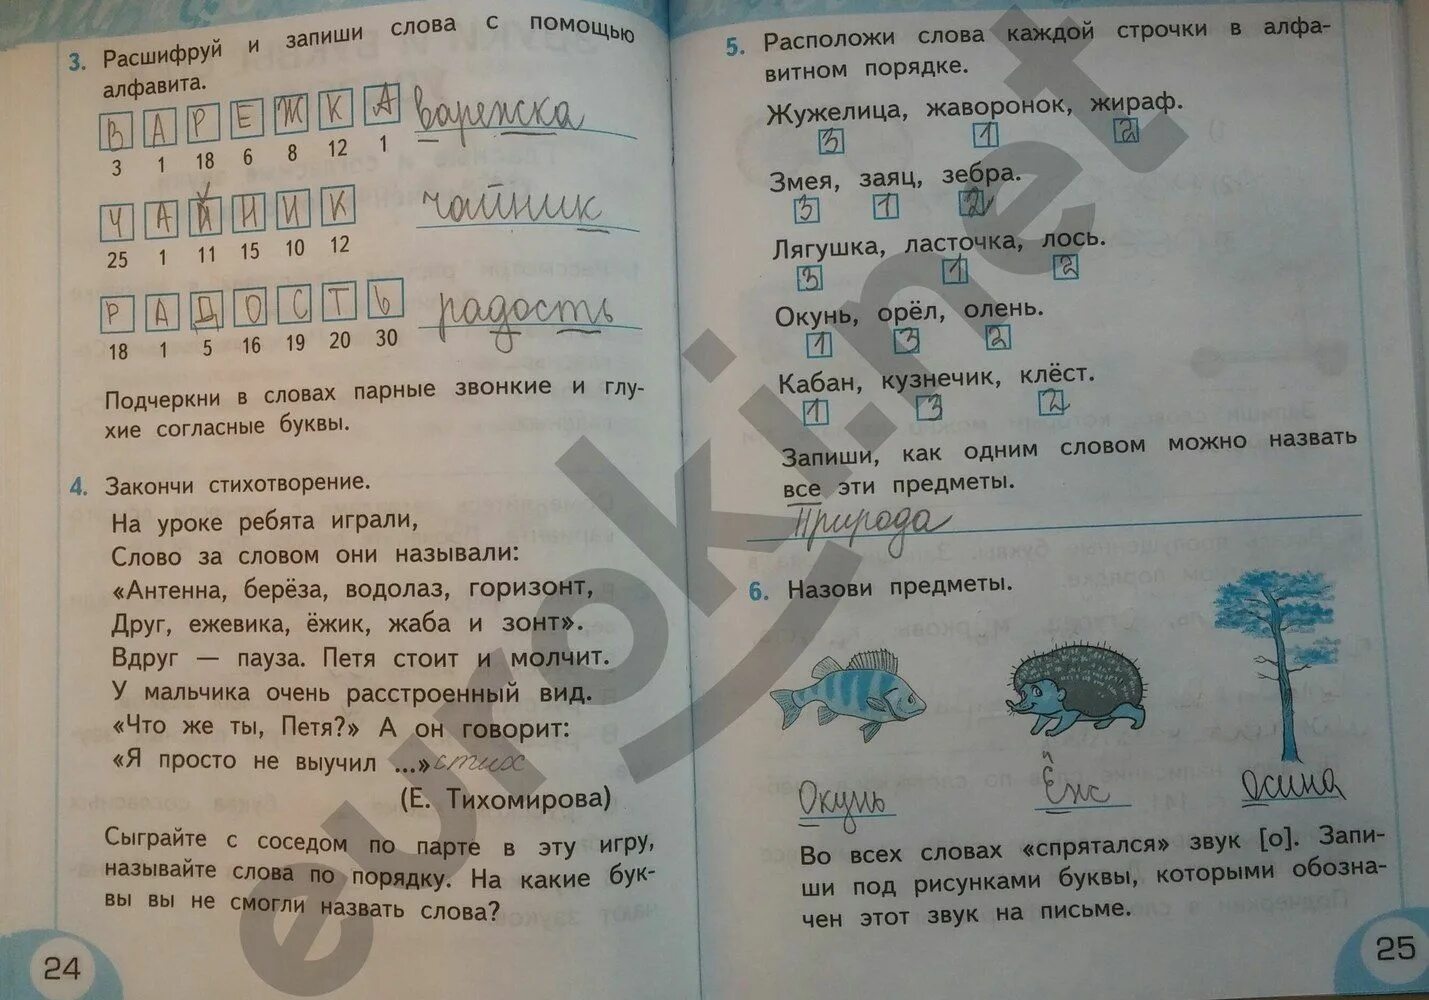 3. Расшифруй и запиши слова с помощью
алфавита.
В А Р Е Ж К А варежка
3 1 18 6 8 12 1
Ч А Й Н И К чайник
25 1 11 15 10 12
Р А Д О С Т Ь радость
18 1 5 16 19 20 30
Подчеркни в словах парные звонкие и глу-
хие согласные буквы.
4. Закончи стихотворение.
На уроке ребята играли,
Слово за словом они называли:
«Антенна, берёза, водолаз, горизонт,
Друг, ежевика, ёжик, жаба и зонт».
Вдруг — пауза. Петя стоит и молчит.
У мальчика очень расстроенный вид.
«Что же ты, Петя?» А он говорит:
«Я просто не выучил ...» стих
(Е. Тихомирова)
Сыграйте с соседом по парте в эту игру,
называйте слова по порядку. На какие бук-
вы вы не смогли назвать слова?
24
5. Расположи слова каждой строчки в алфа-
витном порядке.
Жужелица, жаворонок, жираф.
3 1 2
Змея, заяц, зебра.
3 1 2
Лягушка, ласточка, лось.
3 1 2
Окунь, орёл, олень.
1 3 2
Кабан, кузнечик, клёст.
1 3 2
Запиши, как одним словом можно назвать
все эти предметы.
Природа
6. Назови предметы.
Окунь Ёж Осина
Во всех словах «спрятался» звук [о]. Запи-
ши под рисунками буквы, которыми обозна-
чен этот звук на письме.
25
euroki.net